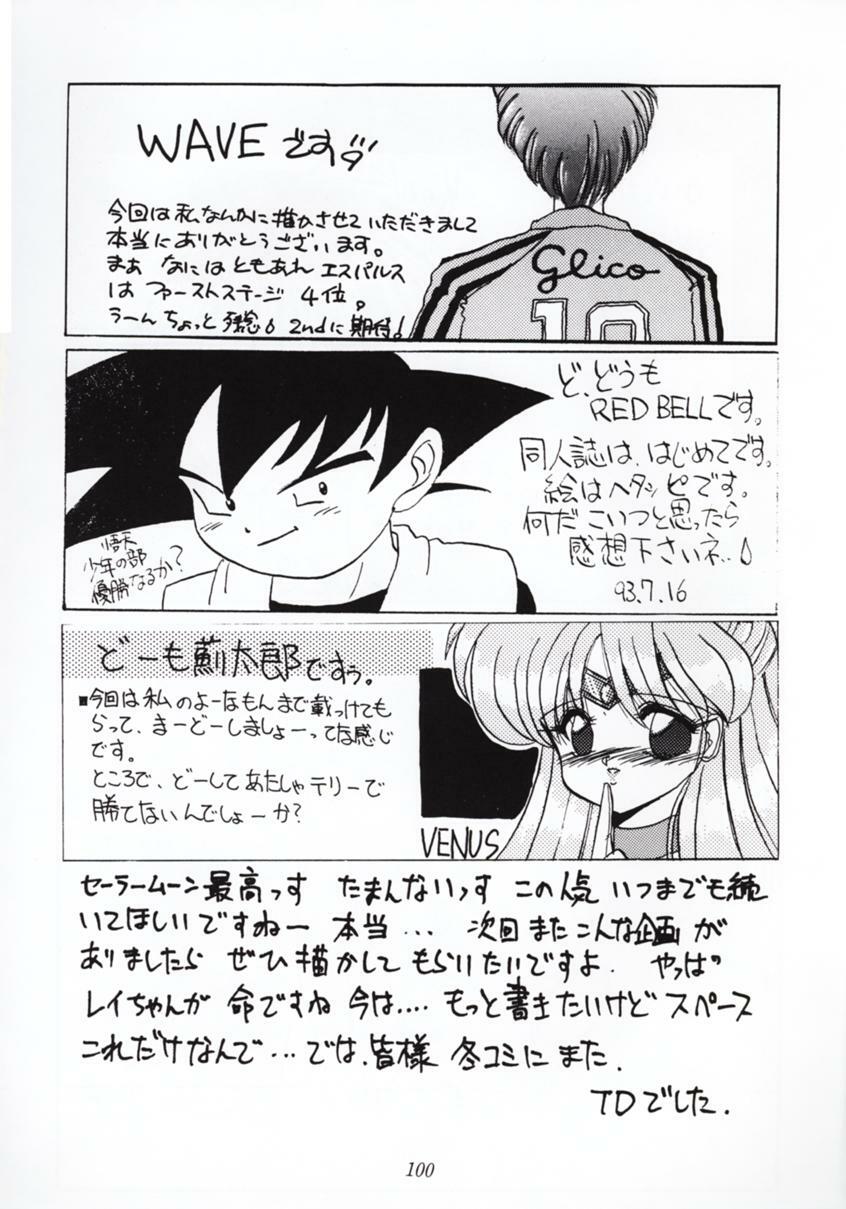 WAVEです
今回は私なんかに描かさせていただきまして
本当にありがとうございます。
まぁ なにはともあれ エスパルス
は ファーストステージ 4位。
うーん ちょっと 残念 2ndに期待!
Glico
10
ど、どうも
RED BELLです。
同人誌は、はじめてです。
絵はヘタッピです。
何だこいつと思ったら
感想下さいネ..
93.7.16
悟天
少年の部
優勝なるか?
どーも薊太郎ですぅ。
■今回は私のよーなもんまで載っけても
らって、まーどーしましょーってな感じ
です。
ところで、どーしてあたしゃテリーで
勝てないんでしょーか?
VENUS
セーラームーン最高っす たまんないっす この人気 いつまでも続
いてほしいですねー 本当... 次回またこんな企画が
ありましたら ぜひ描かして もらいたいですよ. やっぱ
レイちゃんが 命ですね 今は.... もっと書きたいけど スペース
これだけなんで... では.皆様 冬コミにまた.
TDでした.
100